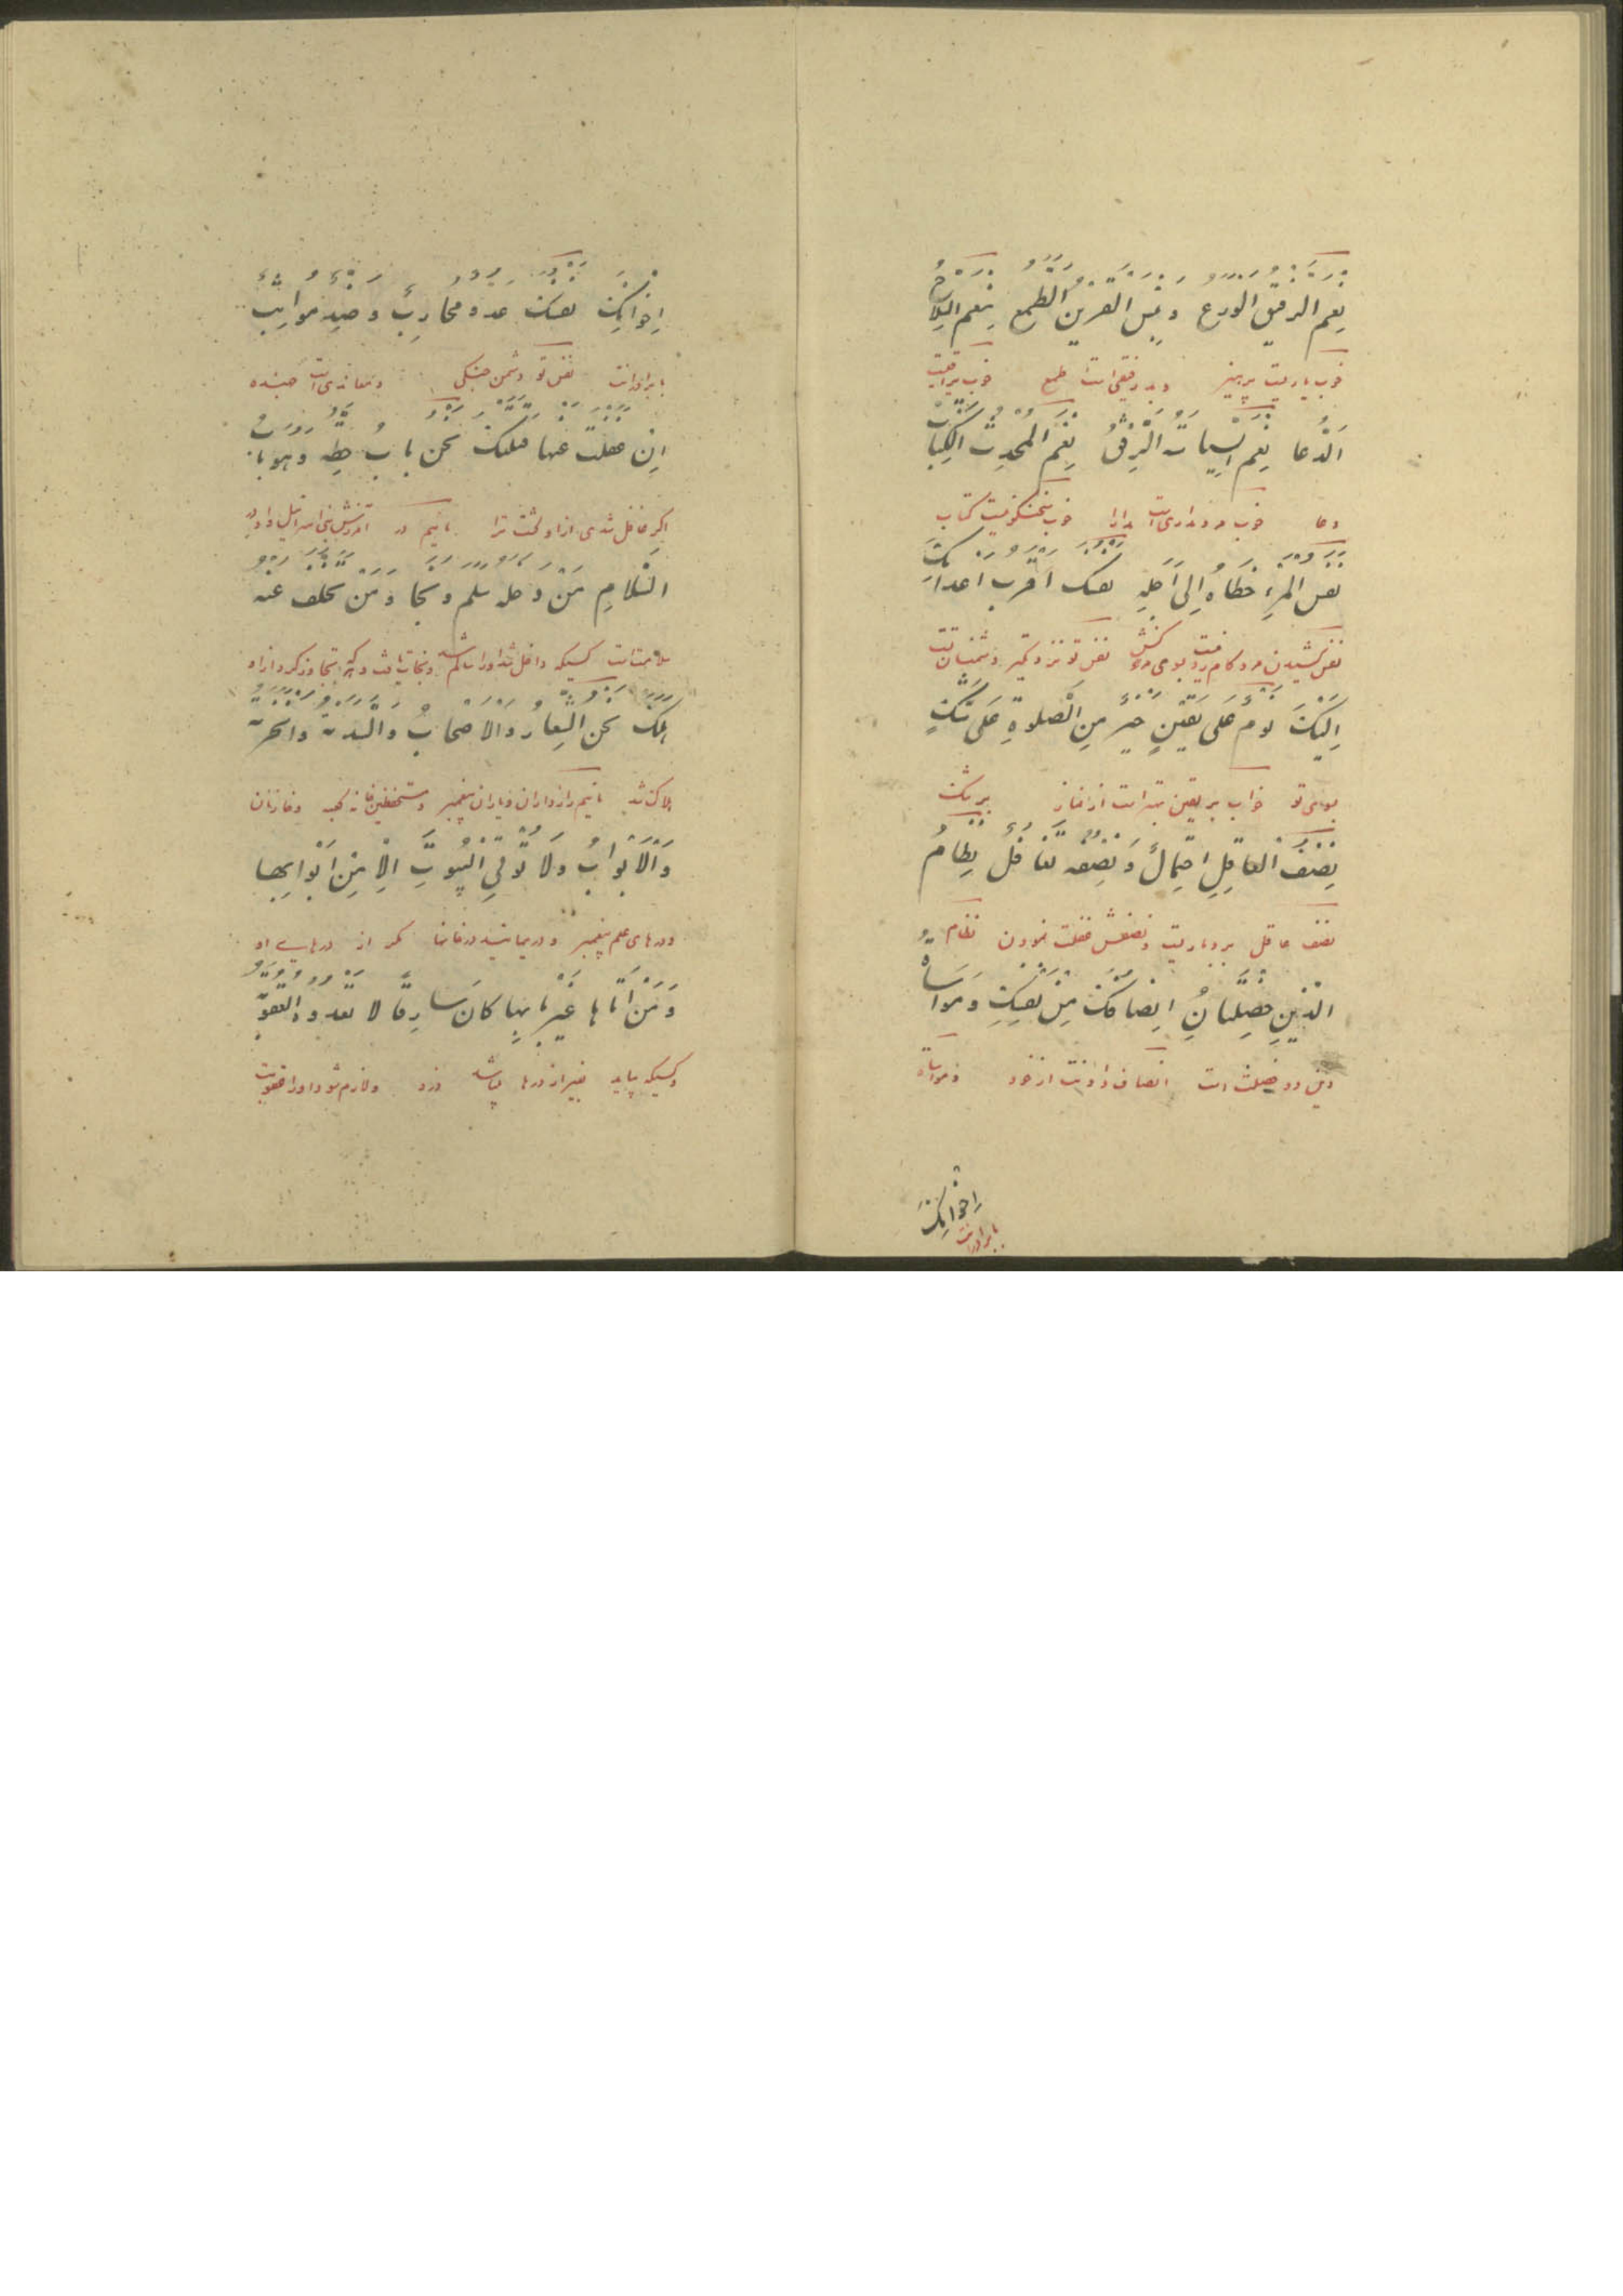 نِعْمَ الرَفِیْقُ الْوَرَعُ وَبِئْسَ الْقَرِیْنُ الطَّمَعُ نِعْمَ السِّلَاحُ
خوب یاریست پرهیز و بد رفیقی است طمع خوب یراقیست
اَلدُّعا نِعْمَ السِّیاسَةُ الرِّفْقُ نِعْمَ الْمُحَدِّثُ الْکِتَابُ
دعا خوب مداراست خوب سخنگوئیست کتاب
نَفَسُ الْمَرْءِ خُطَاهُ اِلیٰ اَجَلِهِ نَفْسُکَ اَقْرَبُ اَعْدَائِکَ
نفس کشیدن مرد کام رفتن بسوی مرگش نفس تو نزدیکتر دشمنان تست
اِلَیْکَ نَوْمٌ عَلیٰ یَقِیْنٍ خَیْرٌ مِنَ الْصَلوةِ عَلیٰ شَکٍّ
بسوی تو خواب بر یقین بهتر است از نماز بر شک
نِصْفُ الْعَاقِلِ احْتِمَالٌ وَ نِصْفُهُ تَغَافُلٌ نِظَامُ
نصف عاقل بردباریست و نصفش غفلت نمودن نظام
الدِّیْنِ خَصْلَتَانِ اِنْصَافُکَ مِنْ نَفْسِکَ وَ مُوَاسَاةُ
دین دو خصلت است انصاف دادنت از خود و مواساة
اِخْوَانِکَ
با برادرانت
اِخْوَانِکَ نَفْسُکَ عَدُوٌّ مُحَارِبٌ وَ ضِدٌّ مُوَاثِبٌ
با برادرانت نفس تو دشمن جنگی و معاندی است جهنده
اِنْ غَفَلْتَ عَنْهَا قَتَلَتْکَ نَحْنُ بَابُ حِطَّةٍ وَ هُوَ بَابُ
اگر غافل شدی از او کشت ترا مائیم در آمرزش بنی اسرائیل و او در
السَّلَامِ مَنْ دَخَلَهُ سَلِمَ وَ نَجَا وَ مَنْ تَخَلَّفَ عَنْهُ
سلامت است کسیکه داخل شد او را سالم شد و نجات یافت و کسیکه تجاوز کرد از او
هَلَکَ نَحْنُ الشِّعَارُ وَ الْاَصْحَابُ وَ السَّدَنَةُ وَ الْخَزَنَةُ
هلاک شد مائیم رازداران و یاران پیغمبر و مستحفظین خانه کعبه و خازنان
وَ الْاَبْوَابُ وَ لَا تُؤْتیَ الْبُیُوتُ اِلَّا مِنْ اَبْوَابِهَا
و درهای علم پیغمبر و در نیایند در خانها مگر از درهای او
وَ مَنْ اَتَاهَا مِنْ غَیْرِ بَابِهَا کَانَ سَارِقًا لَا تَعْدُوهُ الْعُقُوبَةُ
و کسیکه بیاید بغیر از درها باشد دزد و لازم شود او را عقوبت